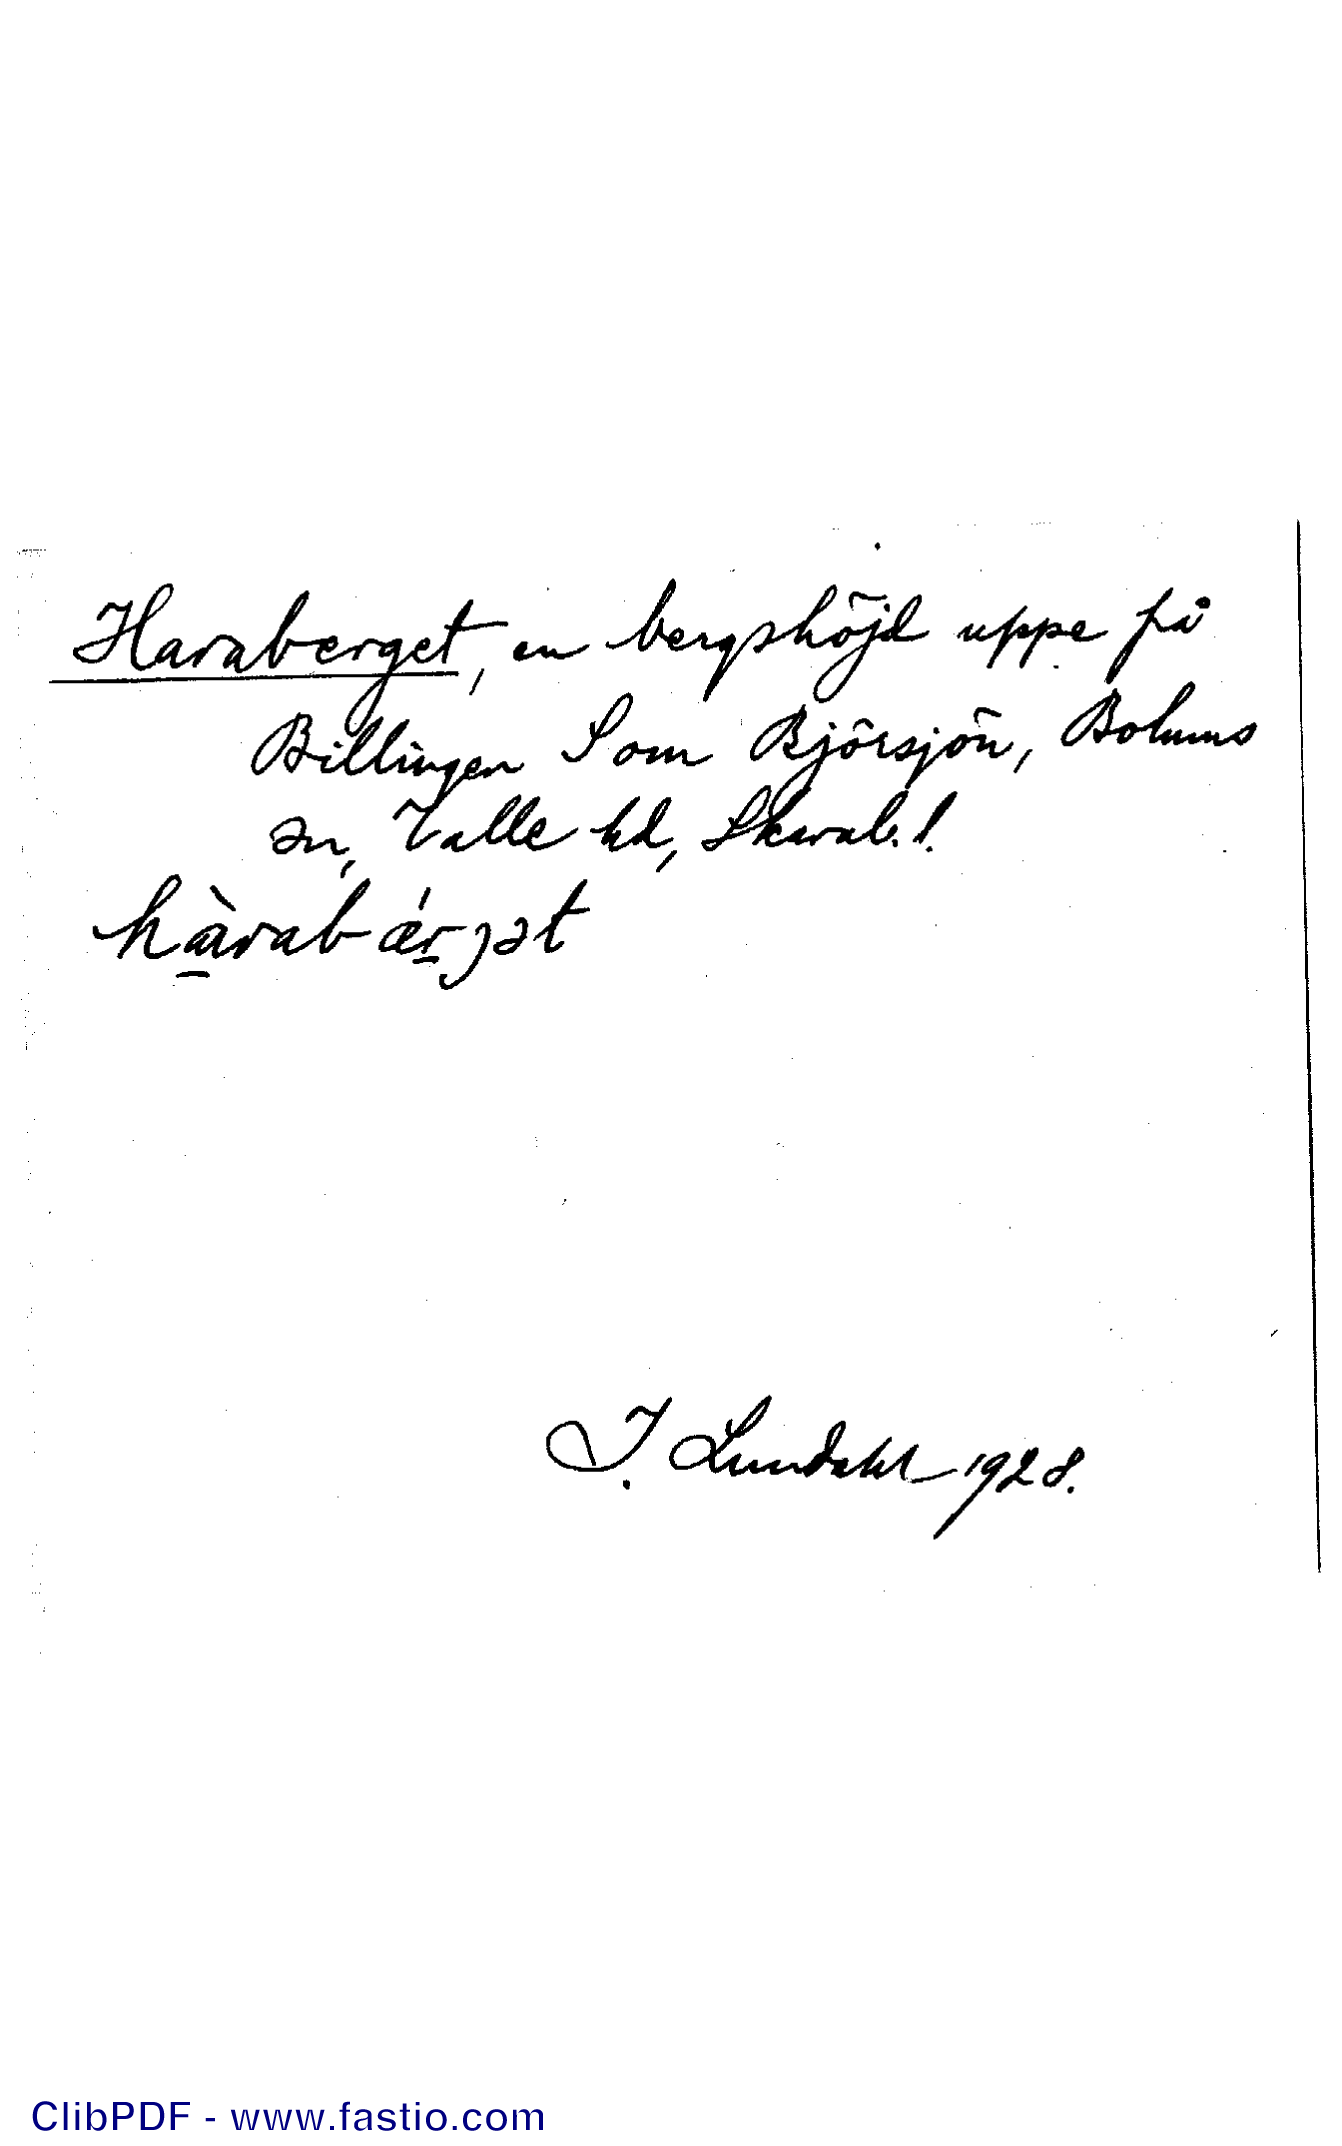 Haraberget, en bergshöjd uppe på
Billingen S om Björsjön, Bolums
sn, Valle hd, Skarab. l.
hàrabǽrjət
I. Lundahl 1928.
ClibPDF - www.fastio.com